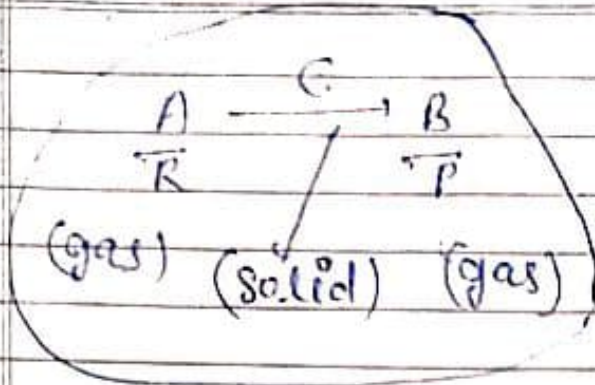 C
A → B
R P
(gas) (solid) (gas)